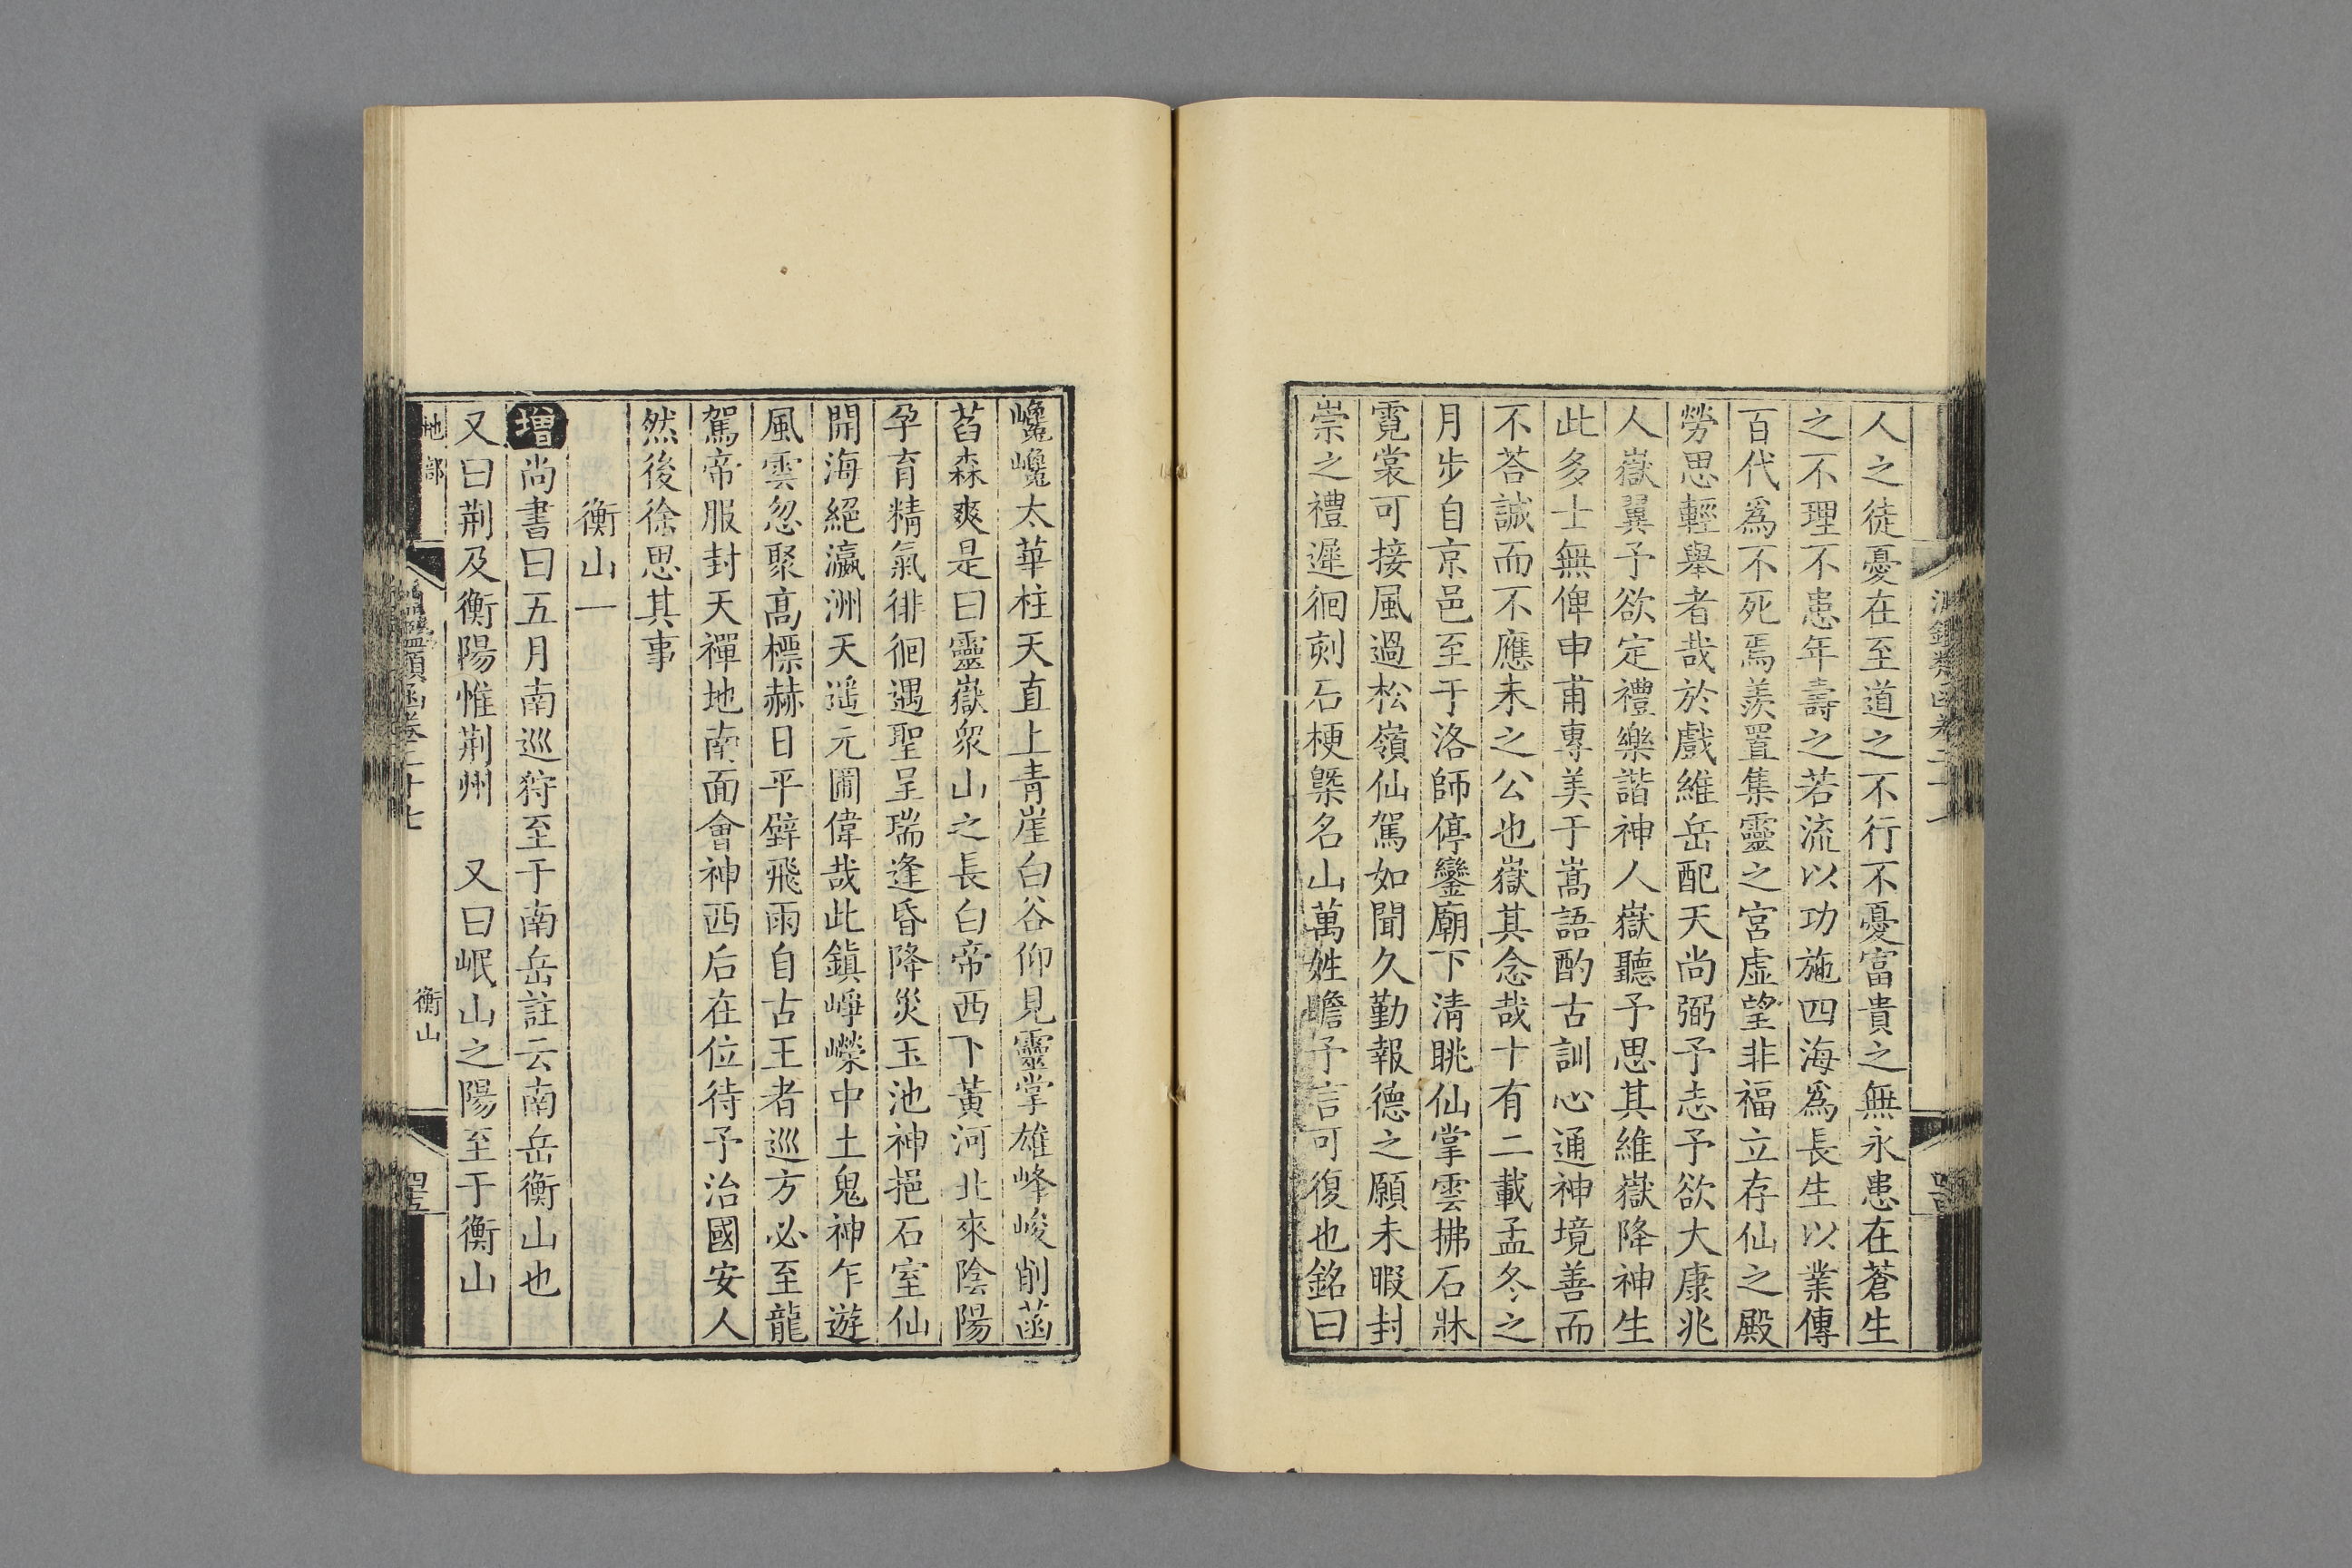 人之徒憂在至道之不行不憂富貴之無永患在蒼生
之不理不患年壽之若流以功施四海爲長生以業傳
百代爲不死焉羨置集靈之宮虛望非福立存仙之殿
勞思輕舉者哉於戲維岳配天尚弼予志予欲大康兆
人嶽翼予欲定禮樂諧神人嶽聽予思其維嶽降神生
此多士無俾申甫專美于嵩語酌古訓心通神境善而
不荅誠而不應未之公也嶽其念哉十有二載孟冬之
月步自京邑至于洛師停鑾廟下清眺仙掌雲拂石牀
霓裳可接風過松嶺仙駕如聞久勤報德之願未暇封
崇之禮遲徊刻石梗槩名山萬姓瞻予言可復也銘曰
巉巉太華柱天直上青崖白谷仰見靈掌雄峰峻削菡
萏森爽是曰靈嶽衆山之長白帝西下黃河北來陰陽
孕育精氣徘徊遇聖呈瑞逢昏降災玉池神挹石室仙
開海絕瀛洲天遥元圃偉哉此鎭崢嶸中土鬼神乍遊
風雲忽聚高標赫日平壁飛雨自古王者巡方必至龍
駕帝服封天禪地南面會神西后在位待予治國安人
然後徐思其事
衡山一
增尚書曰五月南巡狩至于南岳註云南岳衡山也
又曰荆及衡陽惟荆州　又曰岷山之陽至于衡山
地部
衡山